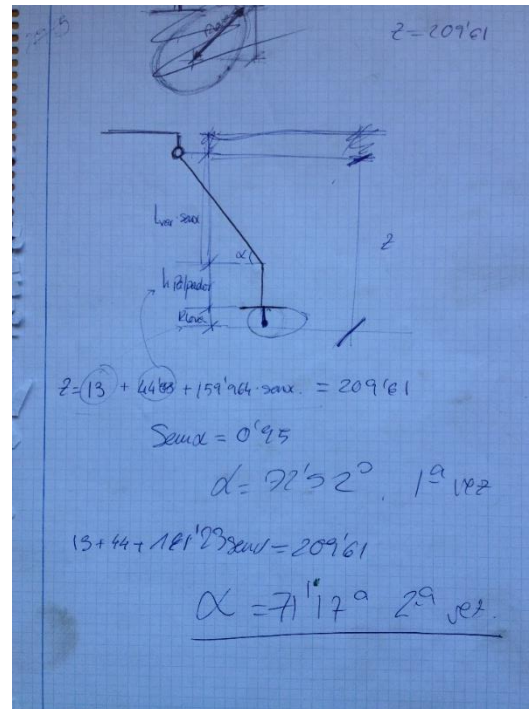 Z = 209'61
α
Z
h palpador
Z = 13 + 44'33 + 159'964·senα = 209'61
Senα = 0'95
α = 72'52º 1ª vez
13 + 44 + 161'23 senα = 209'61
α = 71'17º 2ª vez.